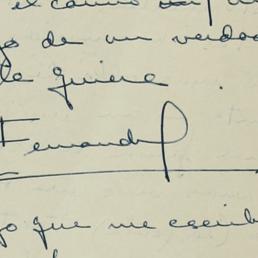 el cariño
de un verdad
te quiere
Fernando
que me escrib